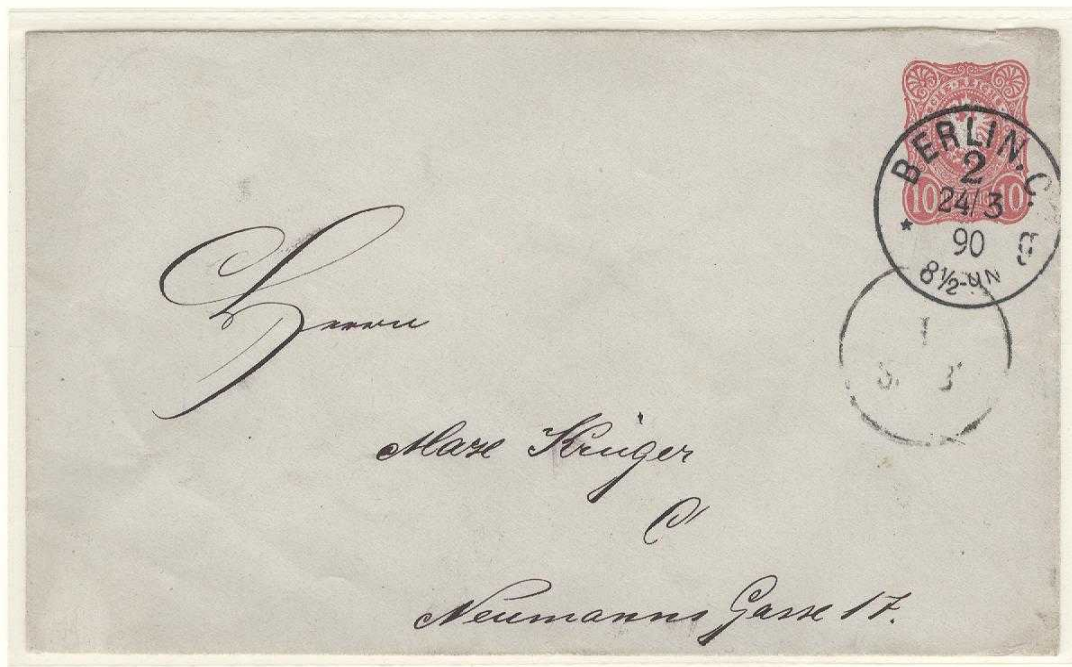 BERLIN. C
2
24/3
90
8½-9N
10 10
Herrn
Max Krüger
C
Neumanns Gasse 17.